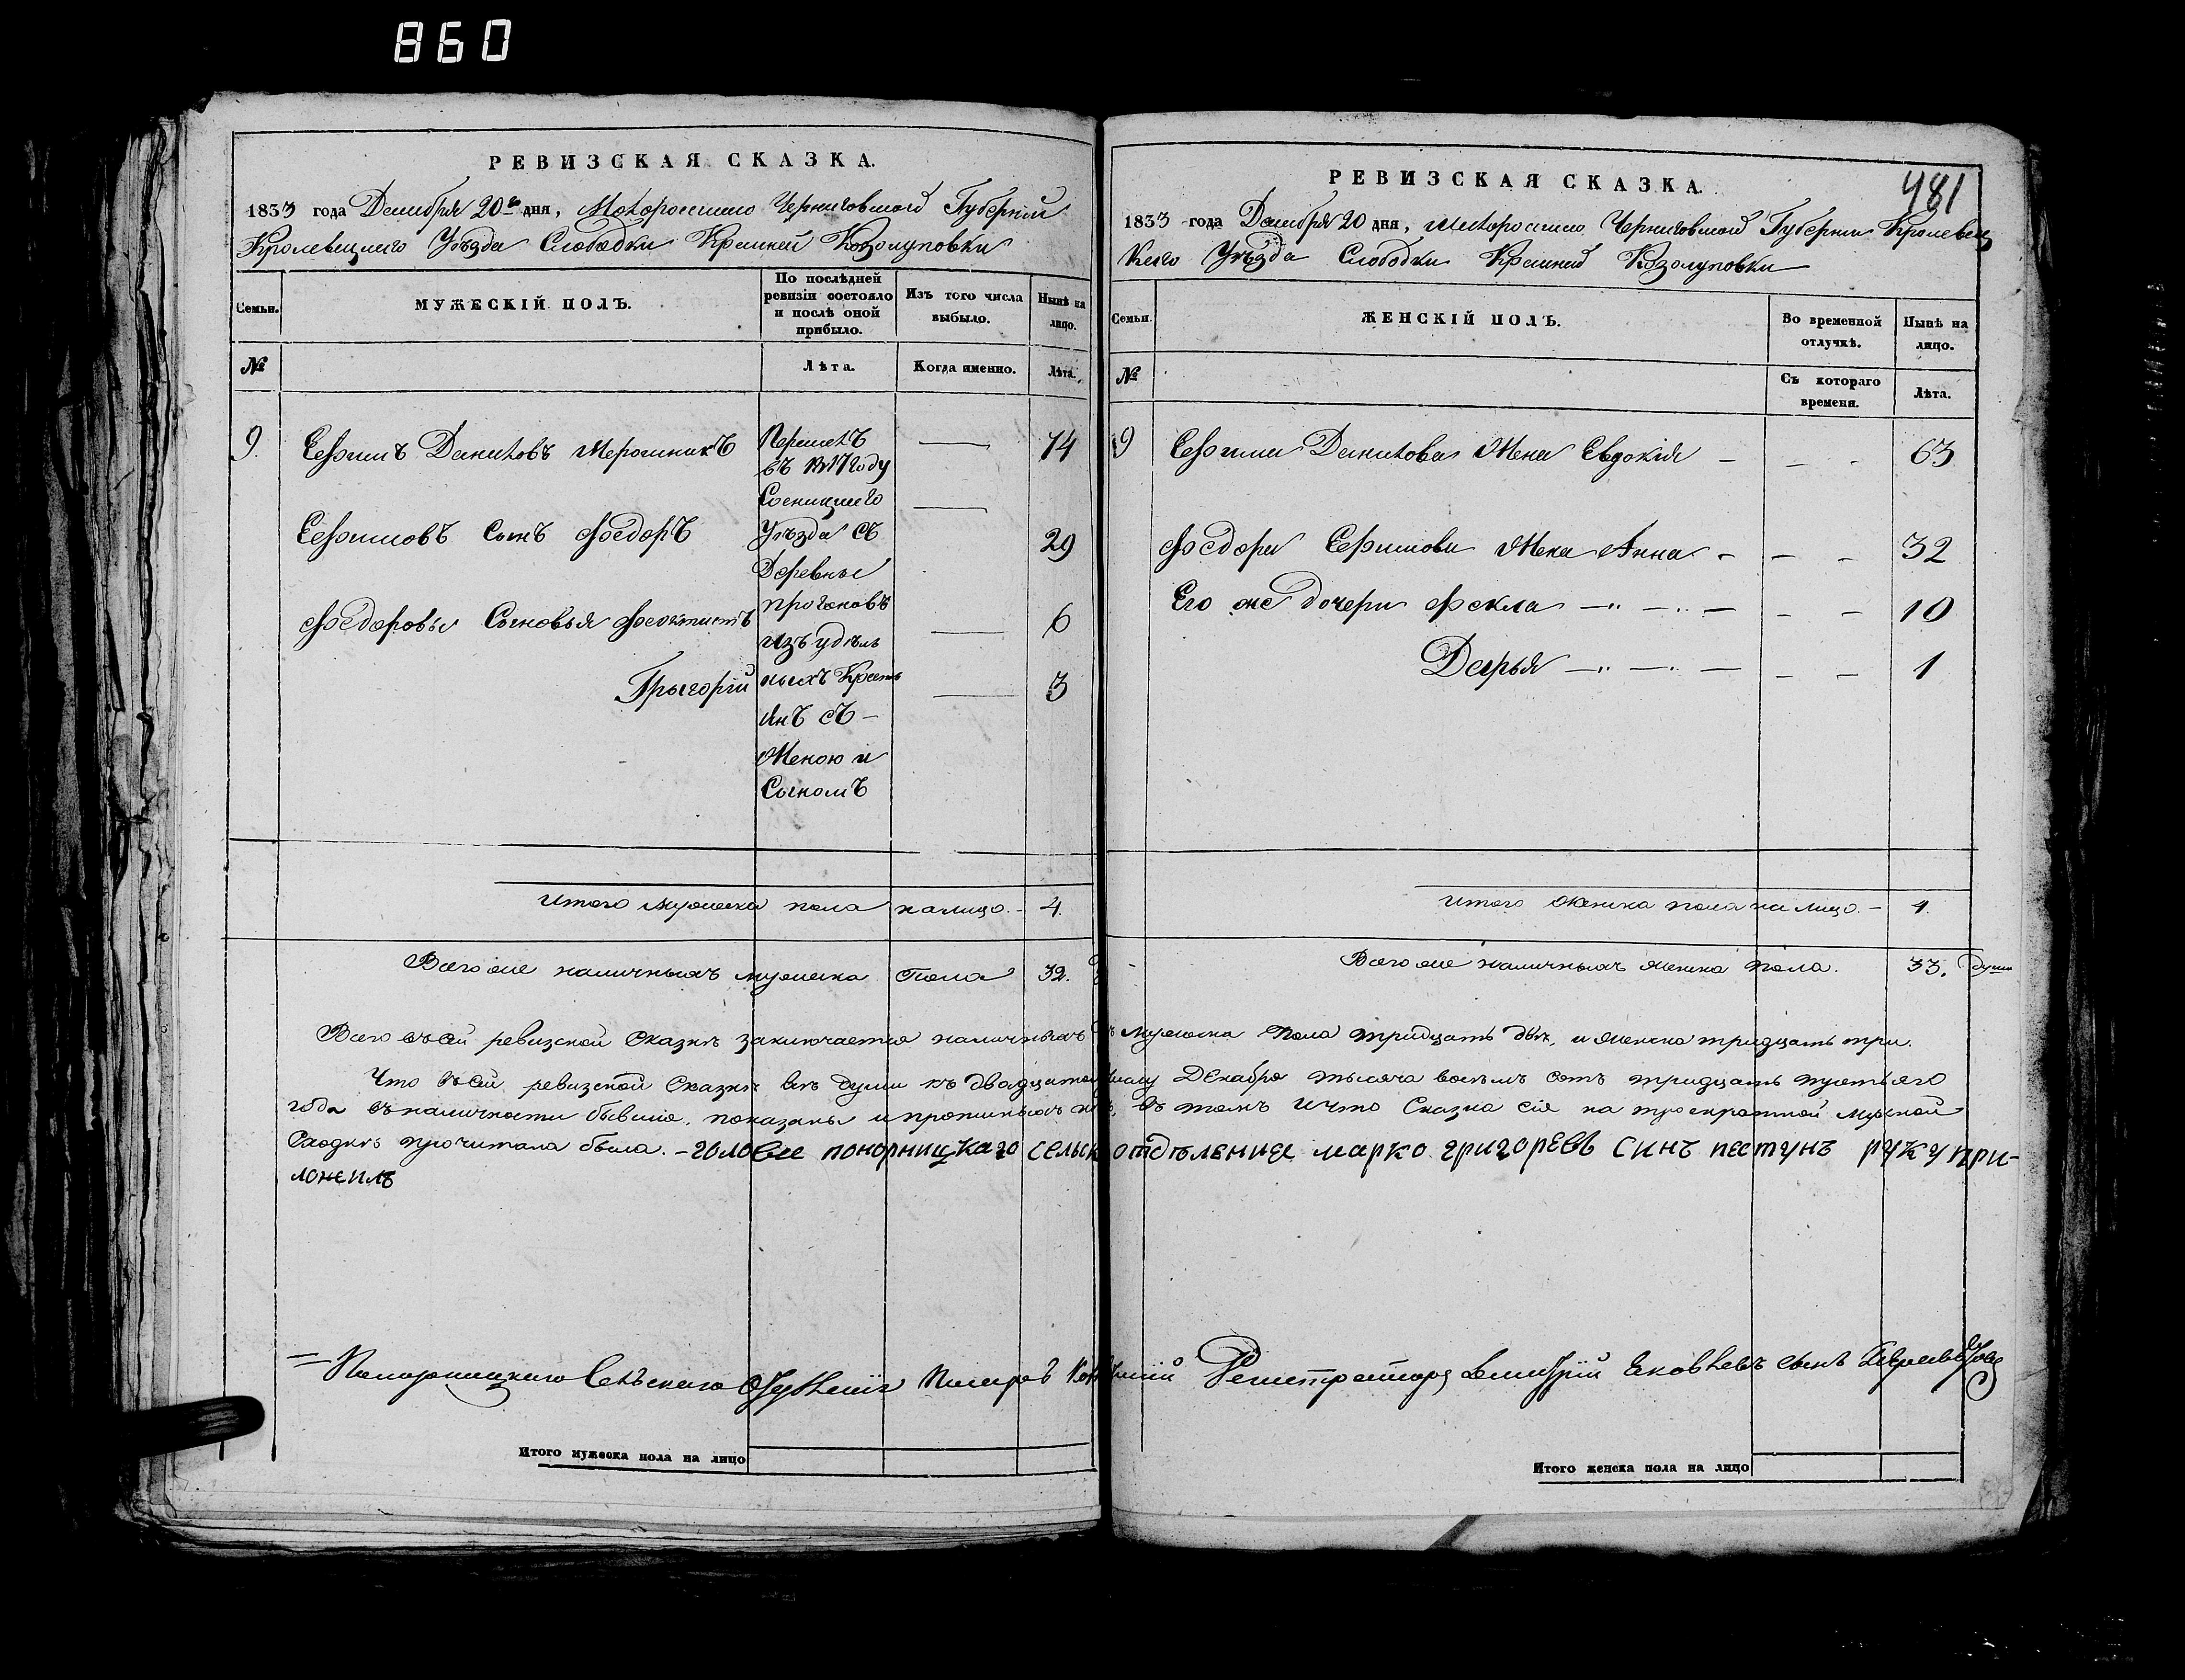 860
РЕВИЗСКАЯ СКАЗКА.
1833 года Декабря 20го дня, Малороссийско Черниговской Губернии
Кролевецкаго Уѣзда Слободки Красной Козолуповки
Семьи.
МУЖЕСКІЙ ПОЛЪ.
По послѣдней ревизіи состояло и послѣ оной прибыло.
Изъ того числа выбыло.
Нынѣ на лицо.
№
Лѣта.
Когда именно.
Лѣта.
9. Ефимъ Даниловъ
Перешелъ
въ 1817 году
Сосницкаго
Уѣзда съ
Деревни
изъ удѣль
ныхъ Кресть
янъ съ
Женою и
Сыномъ
74
Ефимовъ Сынъ Федоръ 29
Федоровы Сыновья Феоктистъ 6
Григорій 3
Итого мужеска пола налицо. - 4.
Всего же наличныхъ мужеска пола 32.
РЕВИЗСКАЯ СКАЗКА.
481
1833 года Декабря 20 дня, Малороссийско Черниговской Губернии Кролевец
каго Уѣзда Слободки Красной Козолуповки
Семьи.
ЖЕНСКІЙ ПОЛЪ.
Во временной отлучкѣ.
Нынѣ на лицо.
№
Съ котораго времени.
Лѣта.
9 Ефима Данилова Жена Евдокія - - - 63
Федора Ефимова Жена Анна - - - 32
Его же дочери Фекла - - - 10
Дарья - - - 1
Итого Женска пола на лицо. - 4.
Всего же наличныхъ женска пола. 33. душ
Всего въ сей ревизской Сказкѣ заключается наличныхъ мужеска Пола тридцать двѣ, и женска тридцать три.
Что въ сей ревизской Сказкѣ всѣ души къ двадцатому числу Декабря тысяча восемь сотъ тридцать третьяго
года въ наличности бывшіе, показаны и прописныхъ нѣтъ, въ томъ и что Сказка сія на троекратной мирской
Сходкѣ прочитана была. - голове понорницкаго сельск отдѣления марко григоревъ синъ пестунъ руку при-
ложилъ
Понорницкаго Сельскаго Отдѣленія Писарь Регистраторъ Яковлевъ сынъ
Итого мужеска пола на лицо
Итого женска пола на лицо